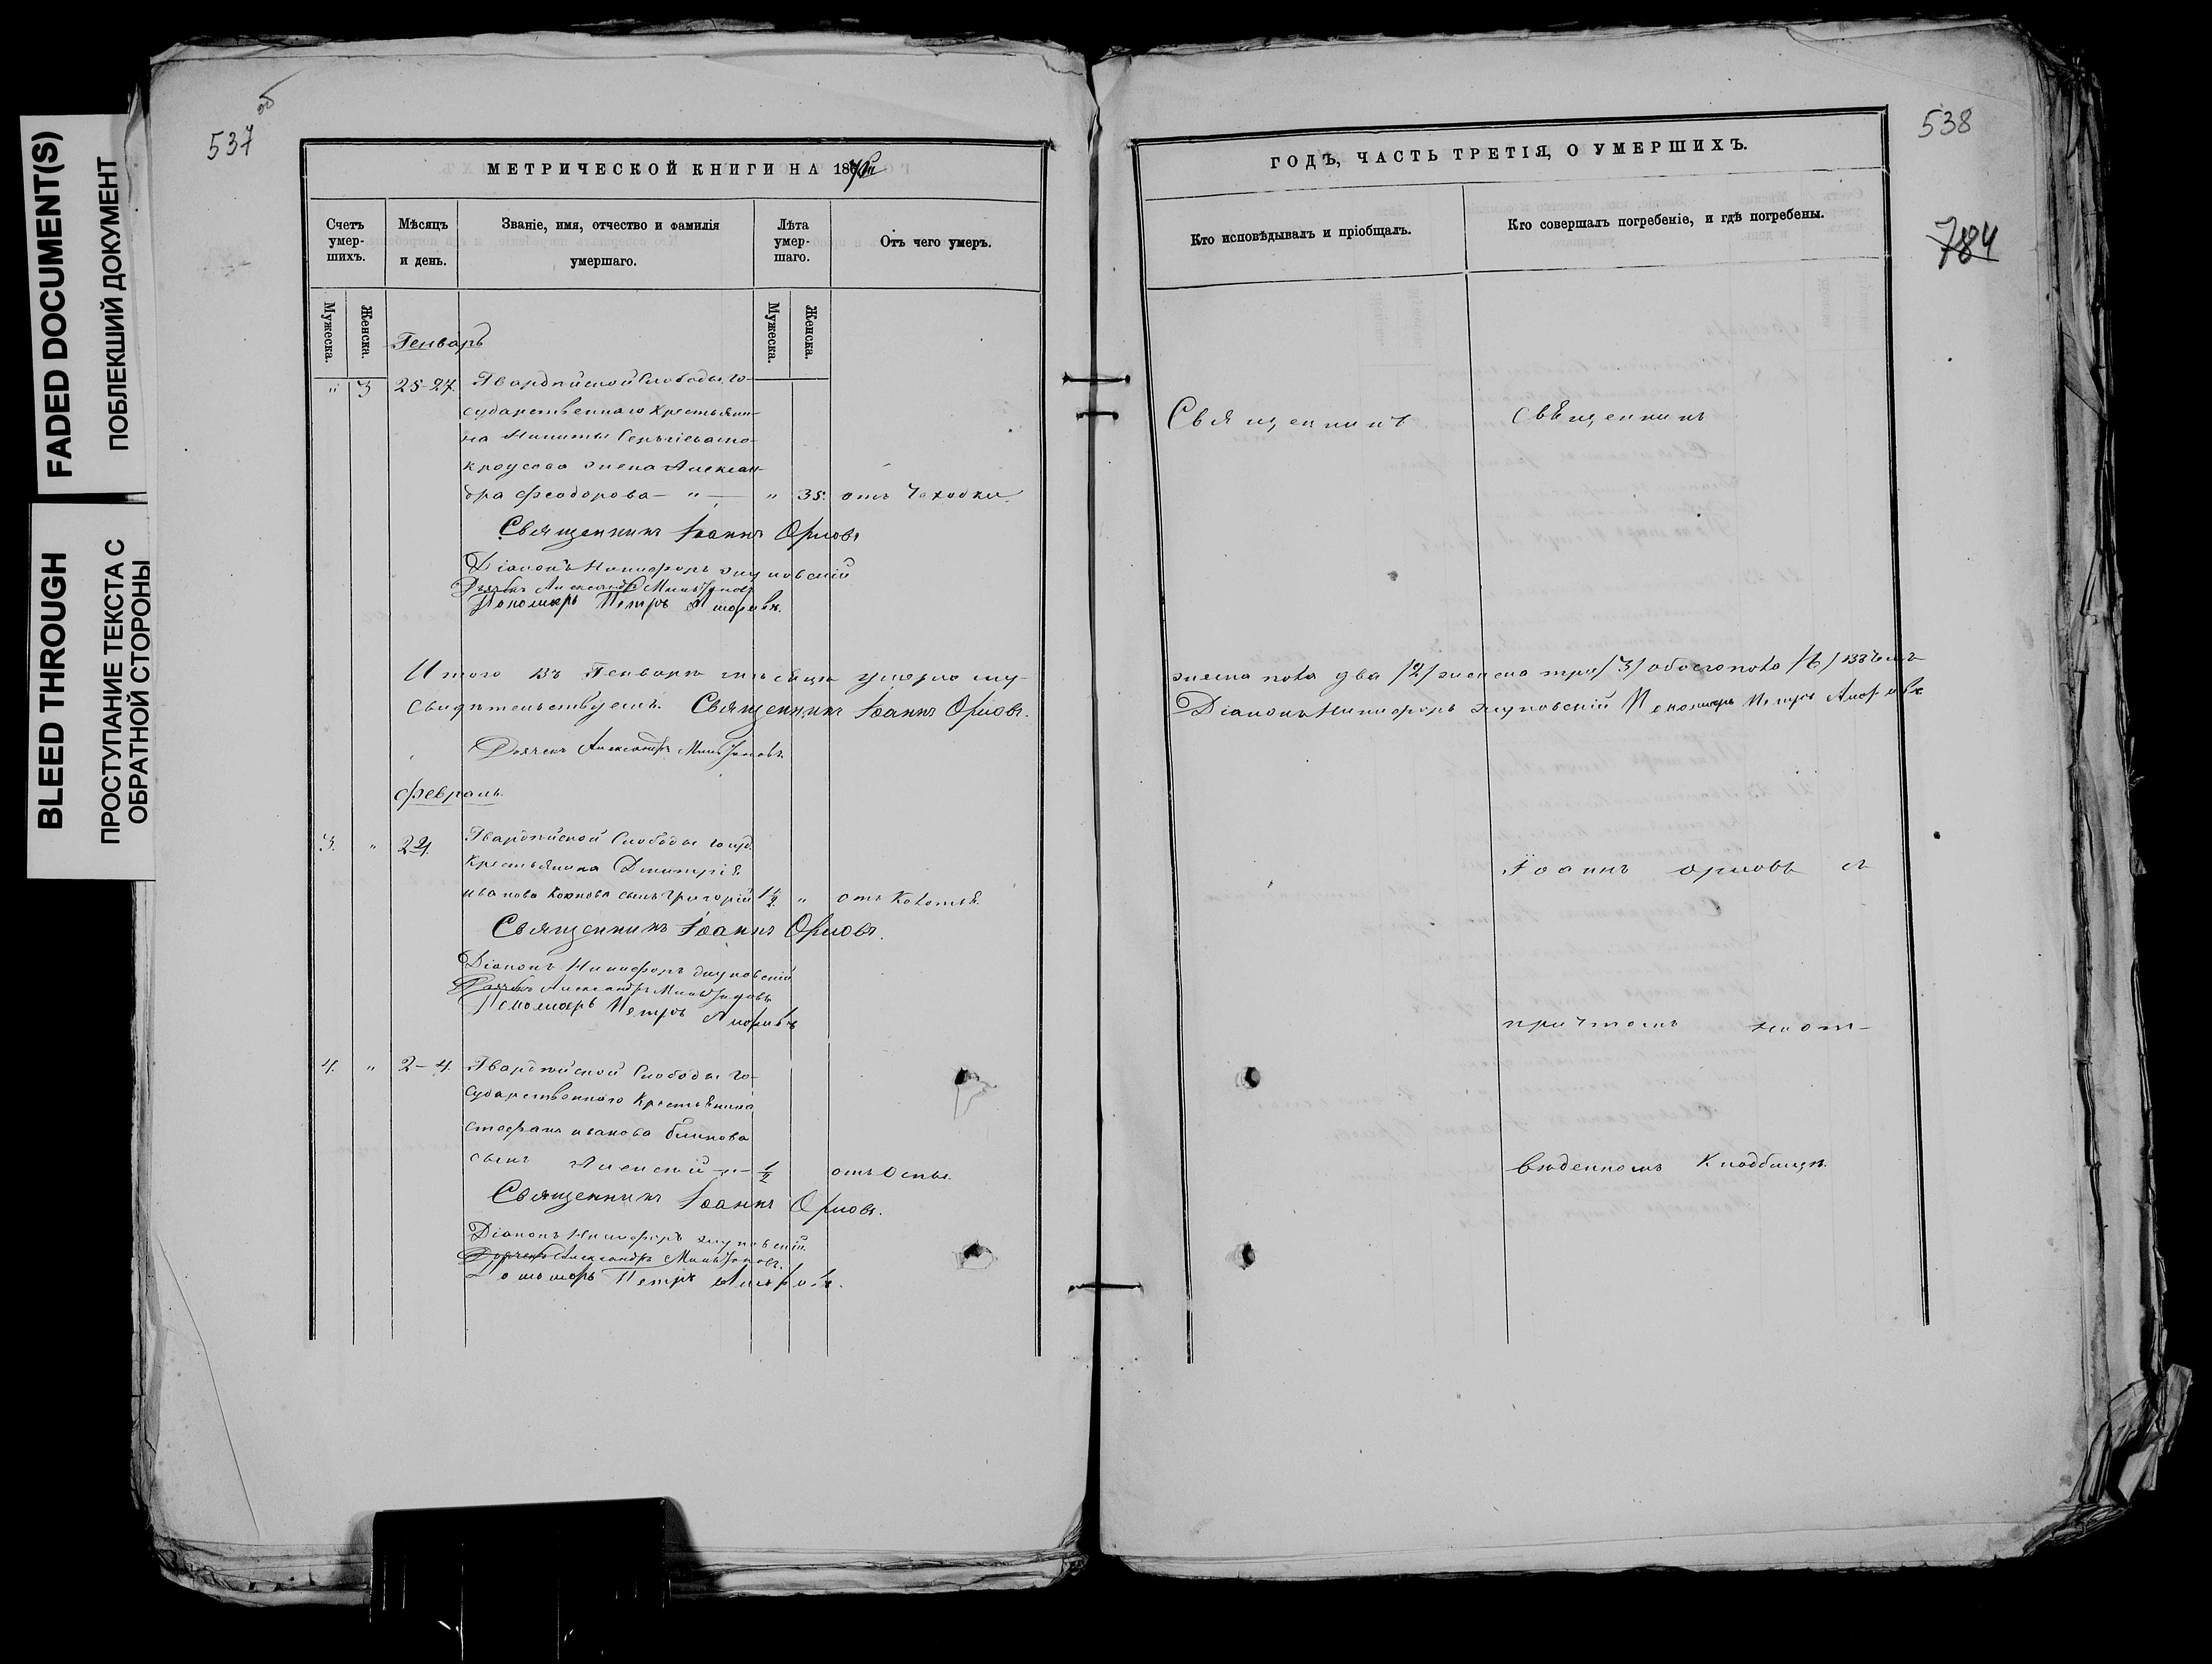 FADED DOCUMENT(S)
ПОБЛЕКШИЙ ДОКУМЕНТ
BLEED THROUGH
ПРОСТУПАНИЕ ТЕКСТА С
ОБРАТНОЙ СТОРОНЫ
537 об
МЕТРИЧЕСКОЙ КНИГИ НА 1870й
Счетъ умер-шихъ.
Мужеска.
Женска.
Мѣсяцъ и день.
Званіе, имя, отчество и фамилія умершаго.
Лѣта умер-шаго.
Мужеска.
Женска.
Отъ чего умеръ.
Генварь
" 3 25-27. Гвардейской Слободы го-
сударственнаго крестьяни-
на Никиты
жена Алексан-
дра Феодорова — " — " 35. отъ Чахотки.
Священникъ Іоаннъ Орловъ
Діаконъ Никифоръ
Дьячекъ Александръ
Пономарь Петръ
Итого въ Генваре месяце умерло му-
свидѣтельствуемъ. Священникъ Іоаннъ Орловъ.
Дьячекъ Александръ
Февраль.
3. " 2 4. Гвардейской Слободы госуд.
Крестьянина Димитрія
Иванова сынъ Григорій 1/2 " отъ
Священникъ Іоаннъ Орловъ.
Діаконъ Никифоръ
Дьячекъ Александръ
Пономарь Петръ
4. " 2-4. Гвардейской Слободы го-
сударственнаго Крестьянина
Стефана Иванова Блинова
сынъ Алексій -"- 1/2 отъ Оспы.
Священникъ Іоаннъ Орловъ.
Діаконъ Никифоръ
Дьячекъ Александръ
Пономарь Петръ
538
784
ГОДЪ, ЧАСТЬ ТРЕТІЯ, О УМЕРШИХЪ.
Кто исповѣдывалъ и пріобщалъ.
Кто совершалъ погребеніе, и гдѣ погребены.
Священникъ Священникъ
жеска пола два /2/ женска три /3/ обоего пола въ чемъ
Діаконъ Никифоръ Пономарь Петръ
Іоаннъ Орловъ съ
причтомъ на от-
веденномъ Кладбище.